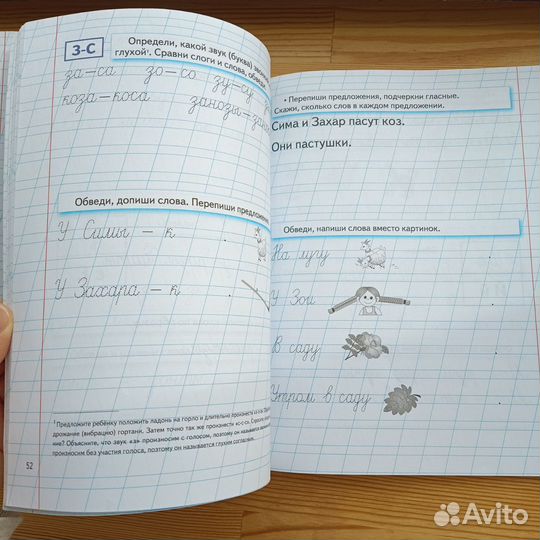 З-С
Определи, какой звук (буква)
глухой¹. Сравни слоги и слова,
за–са зо–со зу–су
коза–коса занозы–
Обведи, допиши слова. Перепиши
У Симы – к
У Захара – к
¹ Предложите ребёнку положить ладонь на горло и длительно произнести
дрожание (вибрацию) гортани. Затем точно так же произнести
ние? Объясните, что звук «з» произносим с голосом, поэтому он называется
произносим без участия голоса, поэтому он называется глухим согласным.
52
• Перепиши предложения, подчеркни гласные.
Скажи, сколько слов в каждом предложении.
Сима и Захар пасут коз.
Они пастушки.
Обведи, напиши слова вместо картинок.
На лугу
У Зои
В саду
Утром в саду
Avito